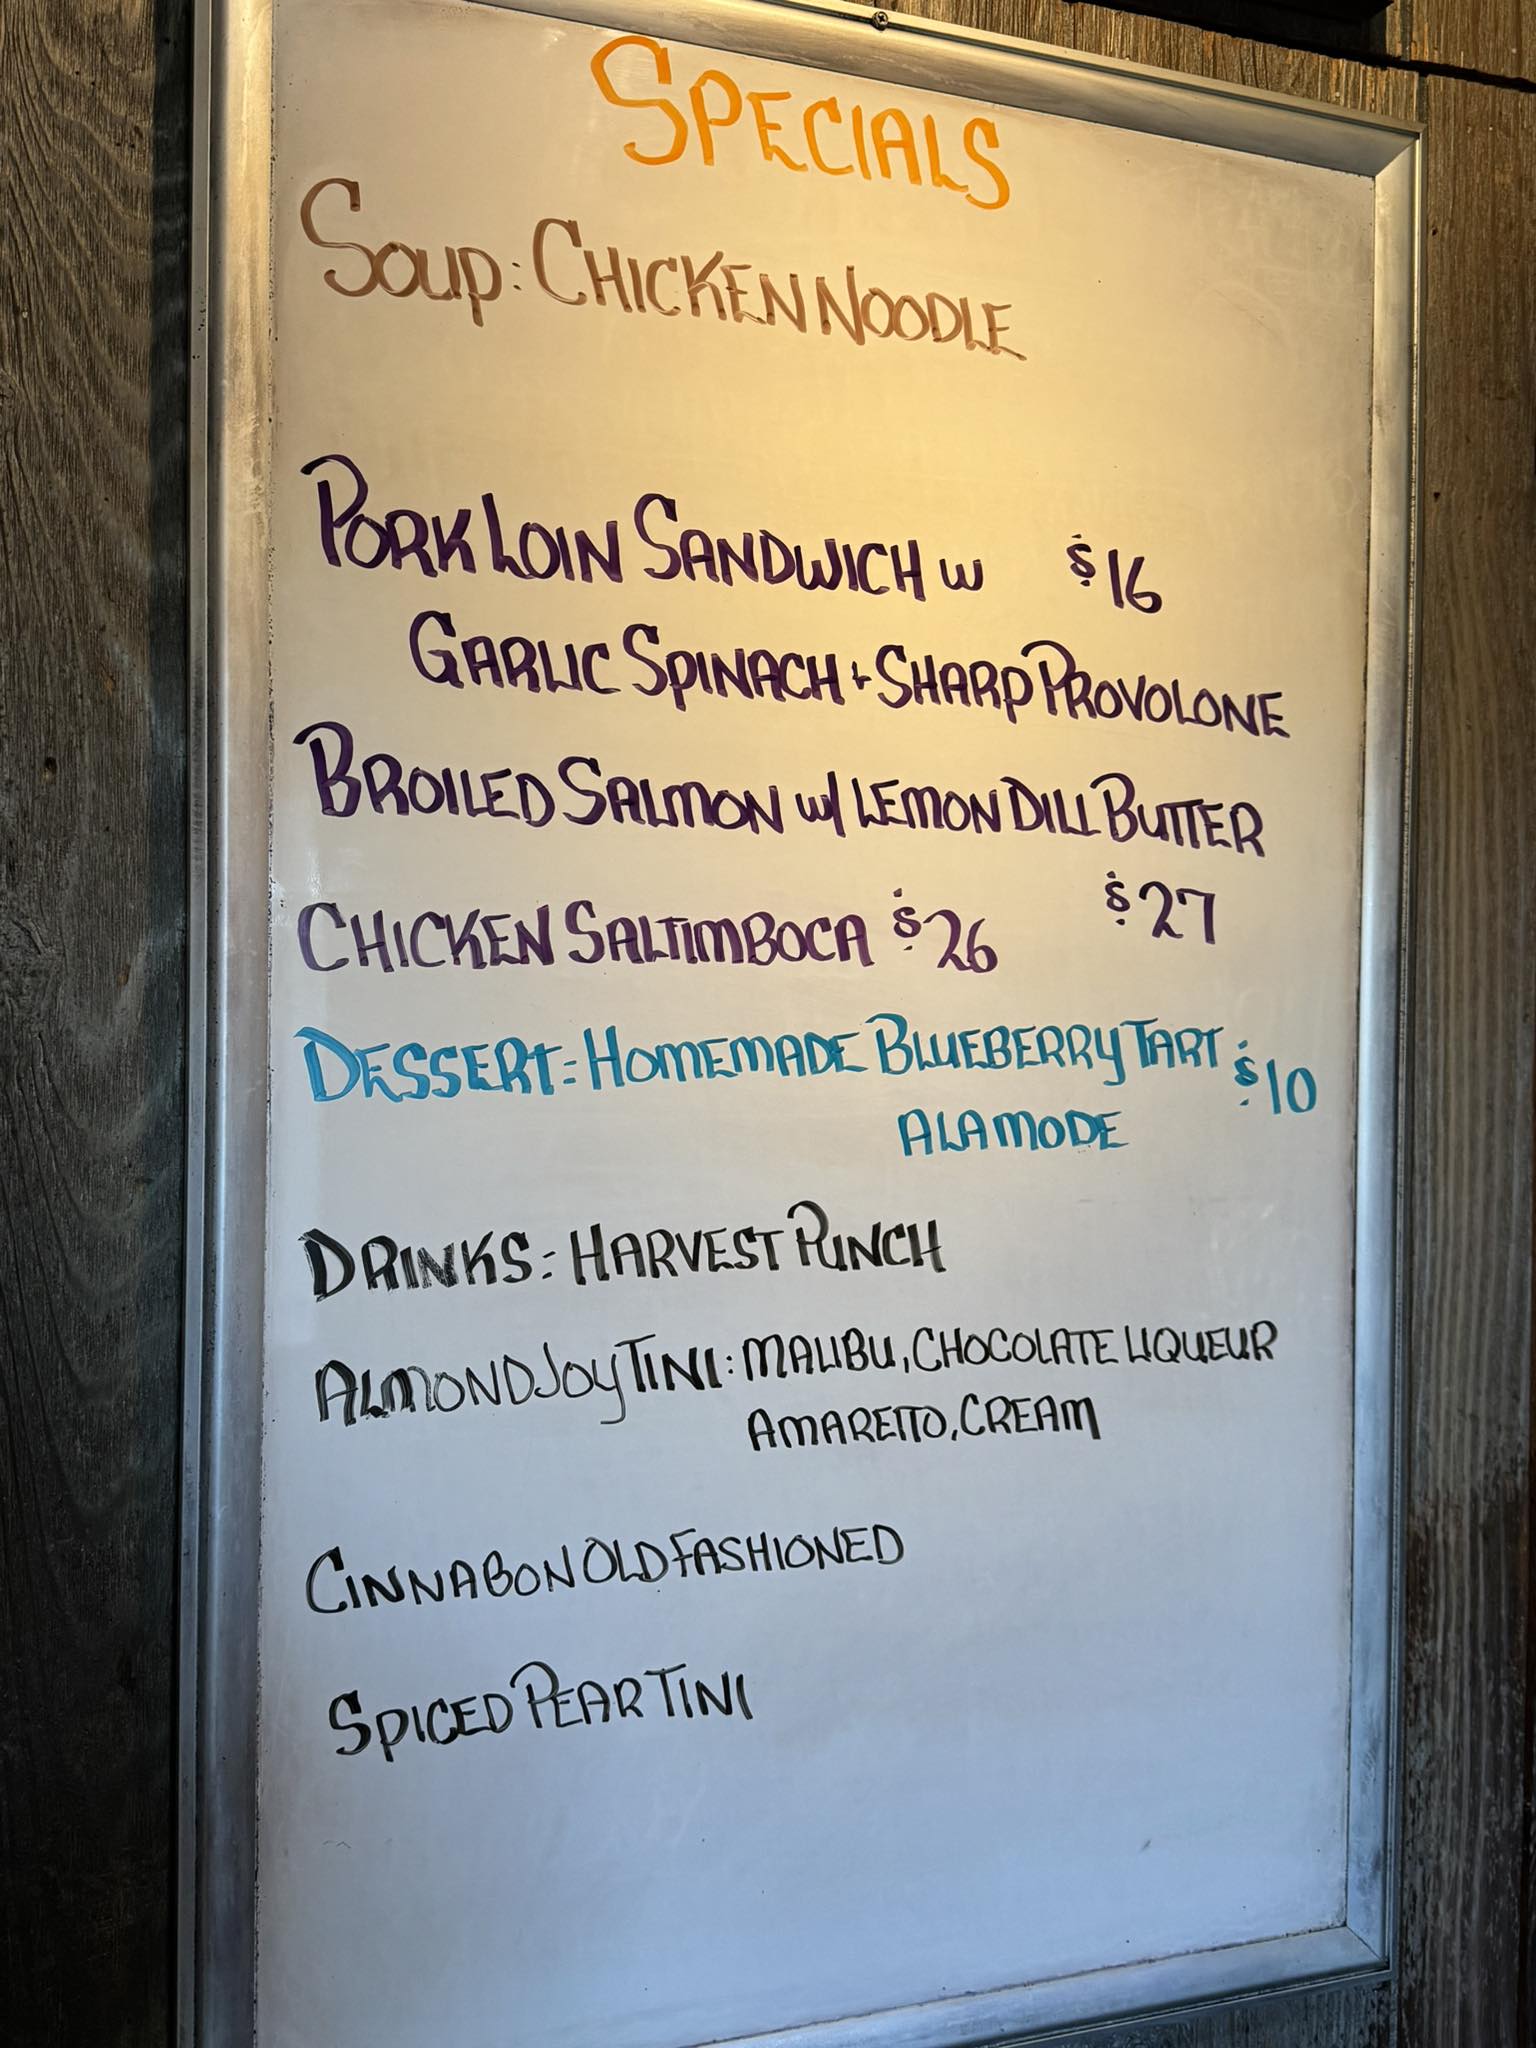 SPECIALS
SOUP: CHICKEN NOODLE
PORK LOIN SANDWICH W $16
GARLIC SPINACH + SHARP PROVOLONE
BROILED SALMON W/ LEMON DILL BUTTER
$27
CHICKEN SALTIMBOCA $26
DESSERT: HOMEMADE BLUEBERRY TART $10
ALAMODE
DRINKS: HARVEST PUNCH
ALMOND JOY TINI: MALIBU, CHOCOLATE LIQUEUR
AMARETTO, CREAM
CINNABON OLD FASHIONED
SPICED PEAR TINI